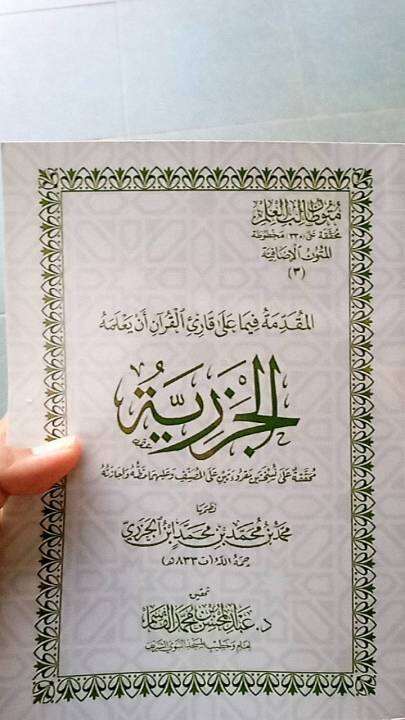 متون طالب العلم
محققة على (٢٣٠) مخطوطة
المتون الإضافية
(٣)
المقدمة فيما على قارئ القرآن أن يعلمه
الجزرية
محققة على نسختين مقروءتين على المصنف وعليهما خطه وإجازته
نظمها
محمد بن محمد بن محمد ابن الجزري
رحمه الله (ت ٨٣٣هـ)
تحقيق
د. عبد المحسن بن محمد القاسم
إمام وخطيب المسجد النبوي الشريف